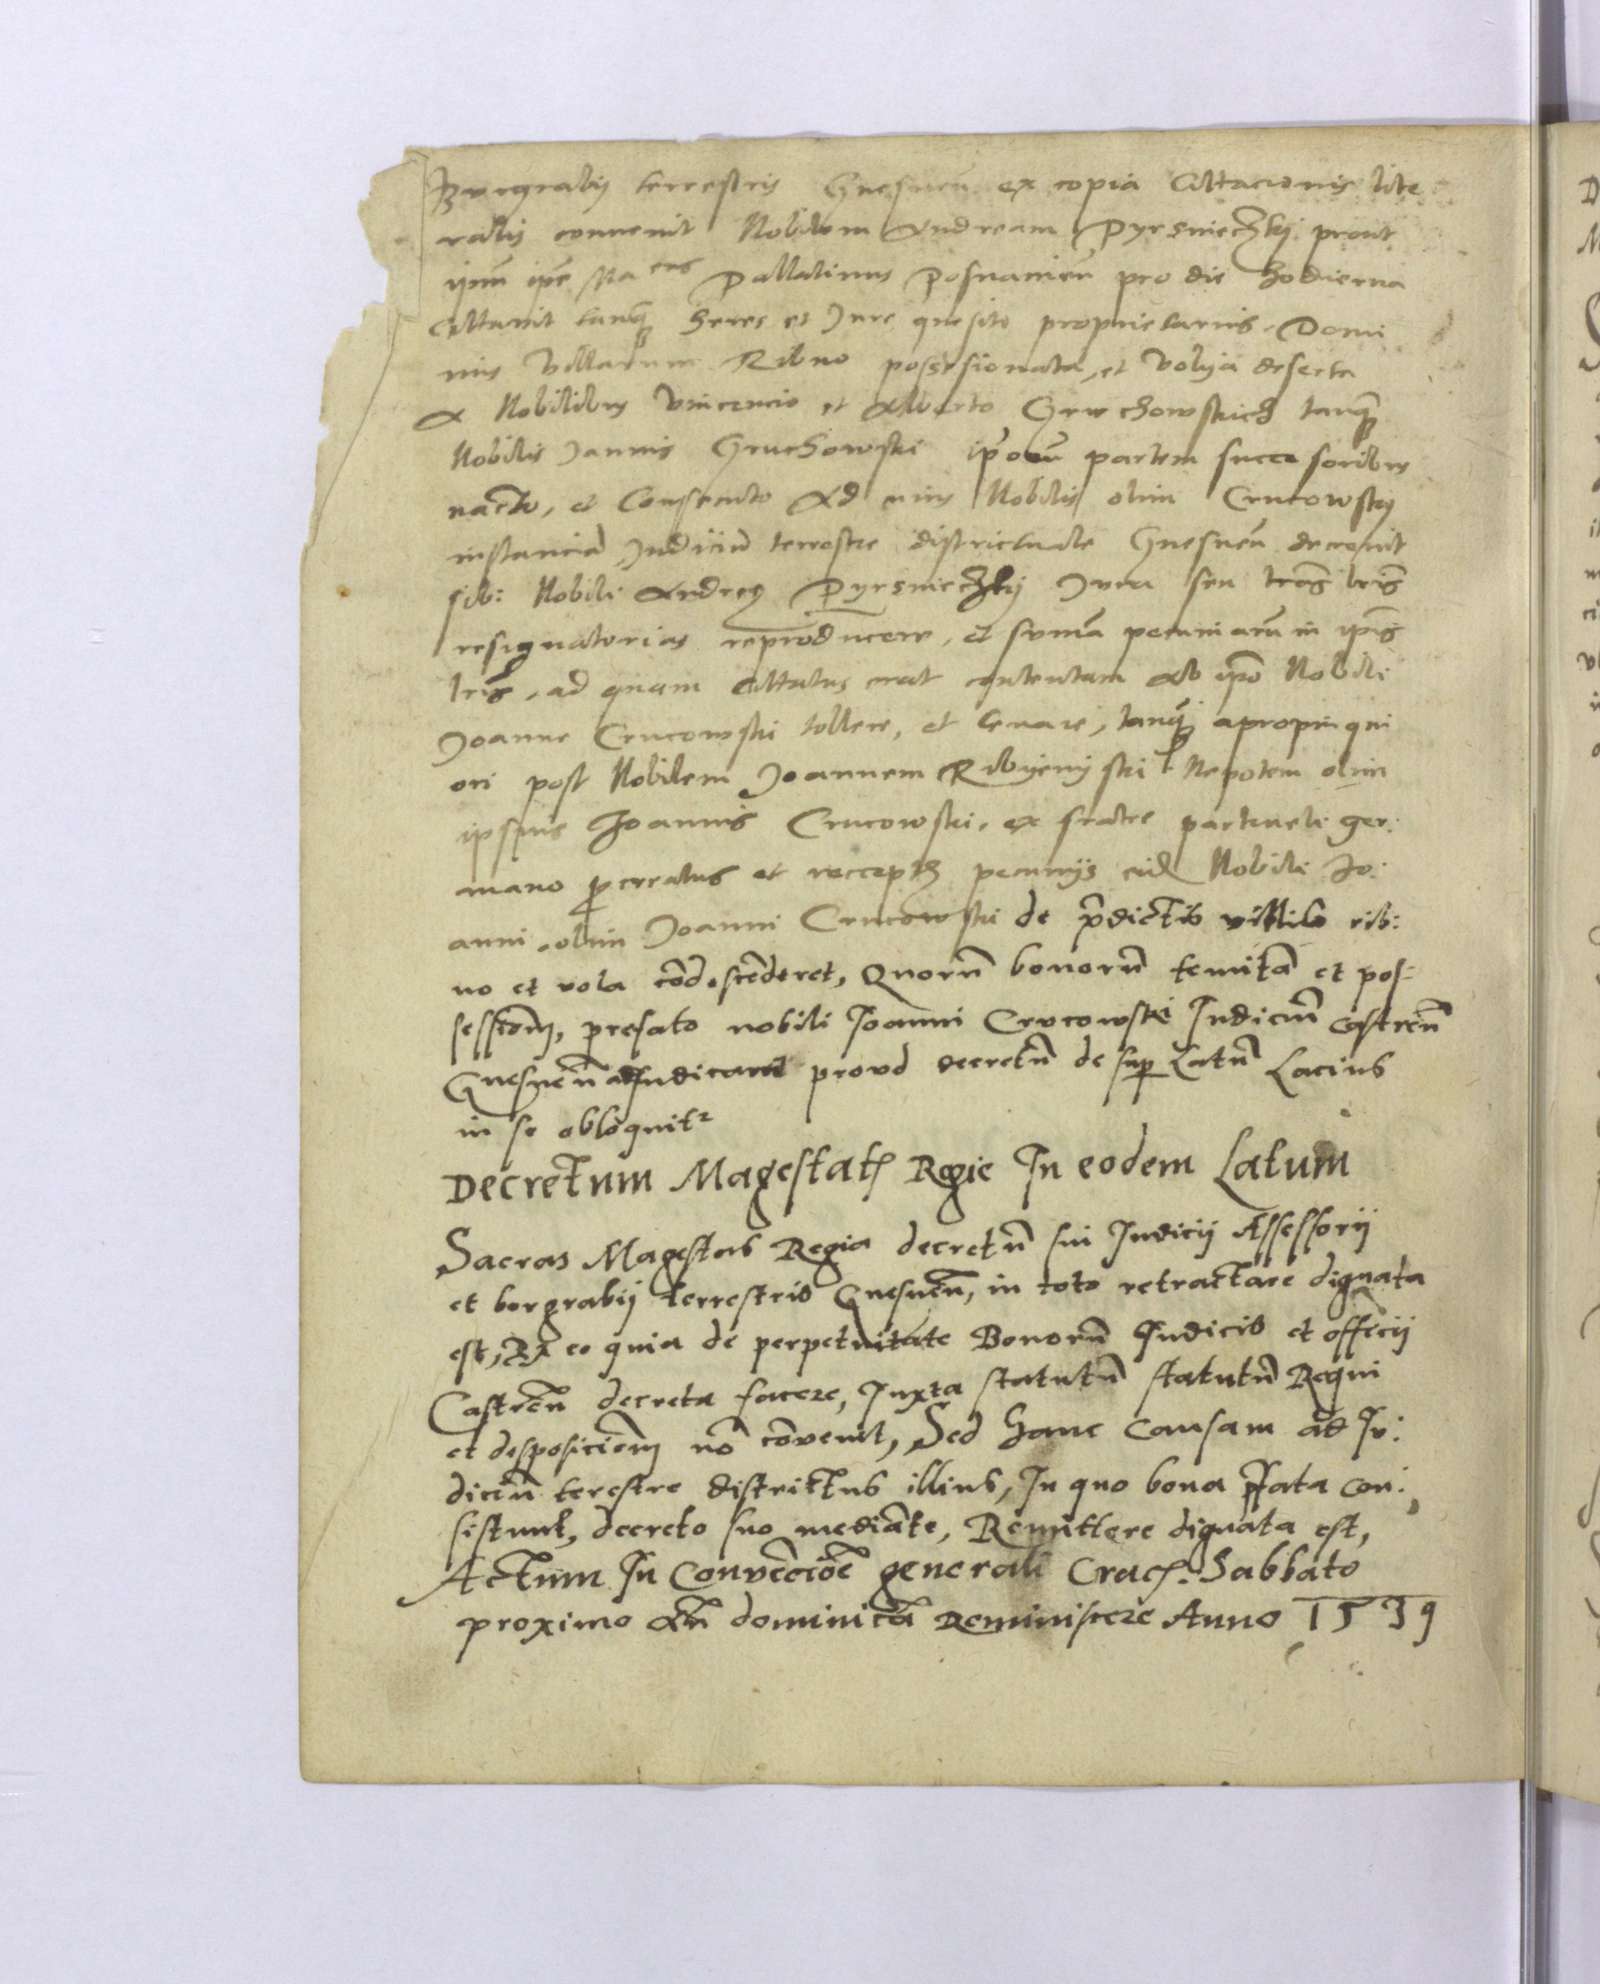 Burgrabij terrestris Gnesnen ex copia Cittacionis lite
ralis convenit Nobilem Andream Pyrsniechkij prout
ipse Ma cus Pallatinus Posnanien pro die hodierna
Cittavit tanq heres et Jure quesito proprietarius Domi
nus Villarum Ribno possesionata, et Volyia deserta
A Nobilibus Vincencio et Alberto Gruchowskich tanq
Nobilis Jannis Gruchowski iporu partem successoribus
nacto, et Consecuto Ad eius Nobilis olim Crucowskij
instancia Judiciu terrestre districtuale Gnesnen decrevit
sibi: Nobili Andreę Pyrsniechkij Jura seu lras
resignatorias reproducere, et suma pecuniaru in ipis
lris, ad quam Cittatus erat contentam Ab ipo Nobili
Joanne Crucowski tollere, et levare, tanq apropinqui
ori post Nobilem Joannem Ribyenijski Nepotem olim
ipsius Joannis Crucowski, ex fratre germano
mano procreatus et receptis pecunijs eid Nobili Jo:
anni olim Joanni Crucowski de prdictis villis rib:
no et vola condescenderet, Quoru bonoru et pos:
sessiom, prefato nobili Joanni Crucowski Judiciu castren
Gnesnen adJudicavit proud decretu de sup Latu Lacius
in se obloquitr
Decretum Magestatis Regie In eodem Latum
Sacras Magestas Regia decretu sui Judicij Assessorij
et borgrabij terrestris Gnesnen, in toto retractare dignata
est, Ex eo quia de perpetuitate Bonoru Judicis et officij
Castren decreta facere, Juxta statutu statutu Regni
et desposiciom no convenit, Sed hanc Causam ad Ju:
diciu terestre districtus illius, In quo bona pfata con:
sistunt, decreto suo mediante, Remittere dignata est,
Actum In Convencioe generali Crac. Sabbato
proximo An dominica Reminiscere Anno 1539